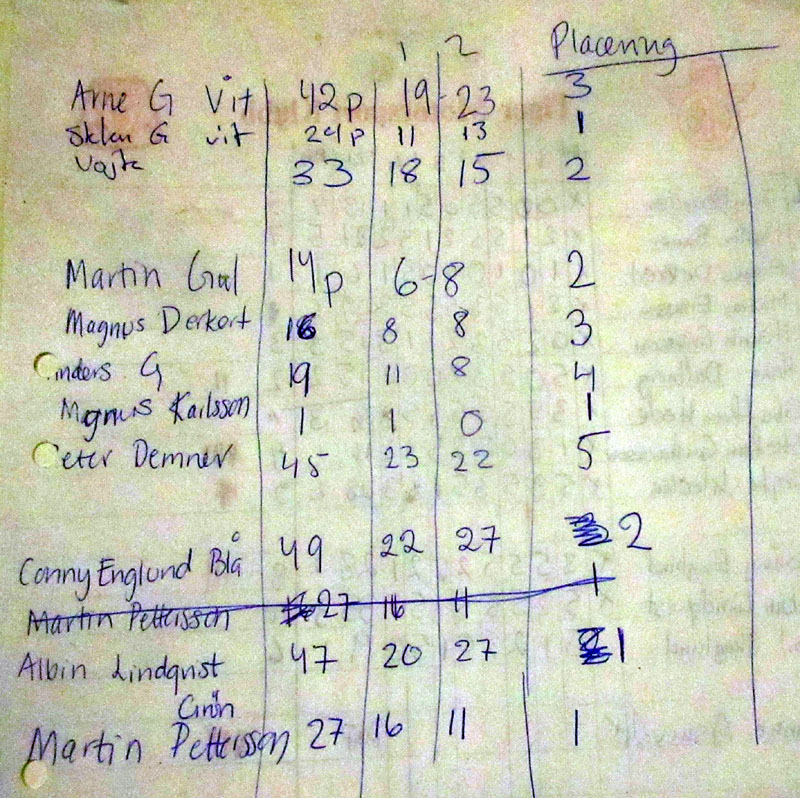 1 2 Placering
Arne G Vit 42p 19-23 3
G vit 24p 11 13 1
33 18 15 2
Martin Gul 14p 6-8 2
Magnus Derkert 16 8 8 3
nders G 19 11 8 4
Magnus Karlsson 1 1 0 1
eter Demner 45 23 22 5
Conny Englund Blå 49 22 27 2
Martin Pettersson 27 16 11 1
Albin Lindqvist 47 20 27 1
Grön
Martin Pettersson 27 16 11 1